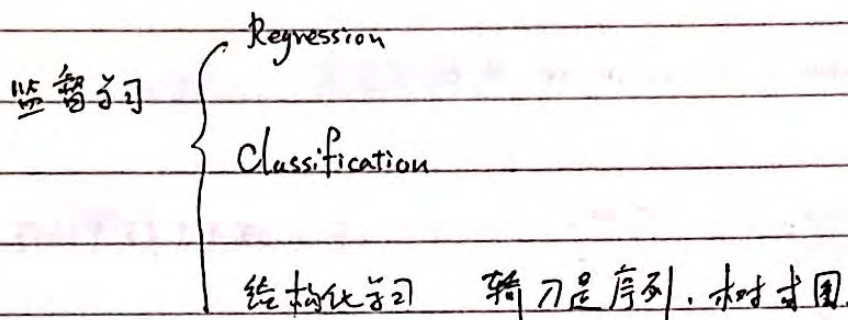 Regression
监督学习
Classification
结构化学习 输入是序列、树或图.